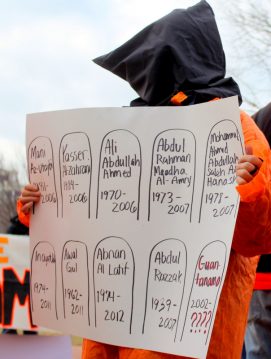 Mani
Yasser
Azzahrani
1984-
2006
Ali
Abdullah
Ahmed
1970-
2006
Abdul
Rahman
Maadha
Al-Amry
1973-
2007
Mohammad
Ahmed
Abdullah
Saleh Al
1978-
2007
1974-
2011
Awal
Gul
1962-
2011
Adnan
Al Latif
1974-
2012
Abdul
Razzak
1939-
2007
Guan-
tanamo
2002-
????